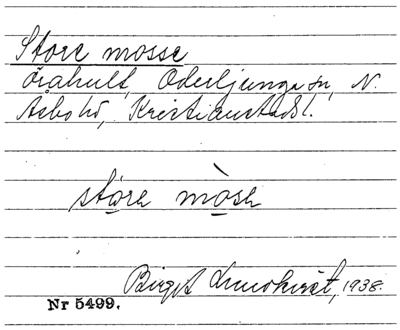 Store mosse
Örahult, Oderljunga sn, N.
Åsbo hd, Kristianstad l.
store mòse
Birgit Lundkvist, 1938.
Nr 5499.